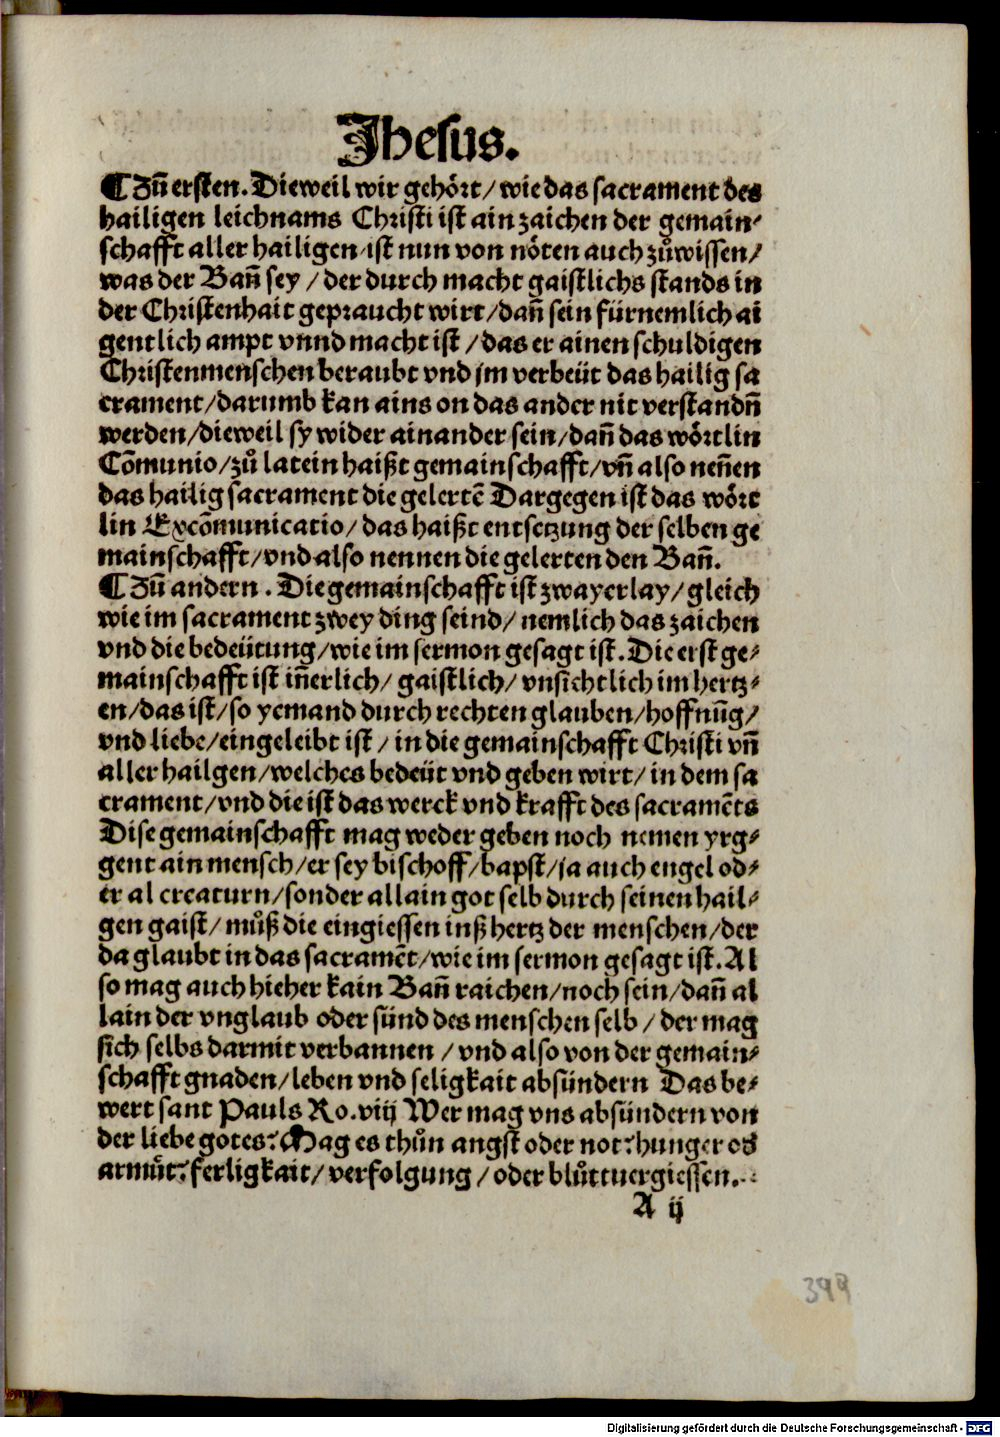 Jhesus.
¶ Zuͦn̄ ersten. Dieweil wir gehoͤrt/ wie das sacrament des
hailigen leichnams Christi ist ain zaichen der gemain⸗
schafft aller hailigen/ ist nun von noͤten auch zuͦwissen/
was der Ban̄ sey / der durch macht gaistlichs stands in
der Christenhait gepraucht wirt/ dan̄ sein fürnemlich ai
gentlich ampt vnnd macht ist / das er ainen schuldigen
Christenmenschen beraubt vnd jm verbeüt das hailig sa
crament/ darumb kan ains on das ander nit verstandn̄
werden/ dieweil sy wider ainander sein/ dan̄ das woͤrtlin
Com̄unio/ zuͦ latein haißt gemainschafft/ vn̄ also nen̄en
das hailig sacrament die gelertē Dargegen ist das woͤrt
lin Excōmunicatio/ das haißt entsetzung der selben ge
mainschafft/ vnd also nennen die gelerten den Ban̄.
¶ Zuͦn̄ andern . Die gemainschafft ist zwayerlay/ gleich
wie im sacrament zwey ding seind/ nemlich das zaichen
vnd die bedeütung/ wie im sermon gesagt ist. Die erst ge⸗
mainschafft ist in̄erlich/ gaistlich/ vnsichtlich im hertz⸗
en/ das ist/ so yemand durch rechten glauben/ hoffnūg/
vnd liebe/ eingeleibt ist / in die gemainschafft Christi vn̄
aller hailgen/ welches bedeüt vnd geben wirt/ in dem sa
crament/ vnd die ist das werck vnd krafft des sacramēts
Dise gemainschafft mag weder geben noch nemen yrg⸗
gent ain mensch/ er sey bischoff/ bapst/ ja auch engel od⸗
er al creaturn/ sonder allain got selb durch seinen hail⸗
gen gaist/ muͦß die eingiessen inß hertz der menschen/ der
da glaubt in das sacramēt/ wie im sermon gesagt ist. Al
so mag auch hieher kain Ban̄ raichen/ noch sein/ dan̄ al
lain der vnglaub oder sünd des menschen selb / der mag
sich selbs darmit verbannen / vnd also von der gemain⸗
schafft gnaden/ leben vnd seligkait absündern Das be⸗
wert sant Pauls Ro. viij Wer mag vns absündern von
der liebe gotes? Mag es thuͦn angst oder not? hunger od
armuͦt? ferligkait/ verfolgung / oder bluͦttuergiessen.
A ij
399
Digitalisierung gefördert durch die Deutsche Forschungsgemeinschaft - DFG